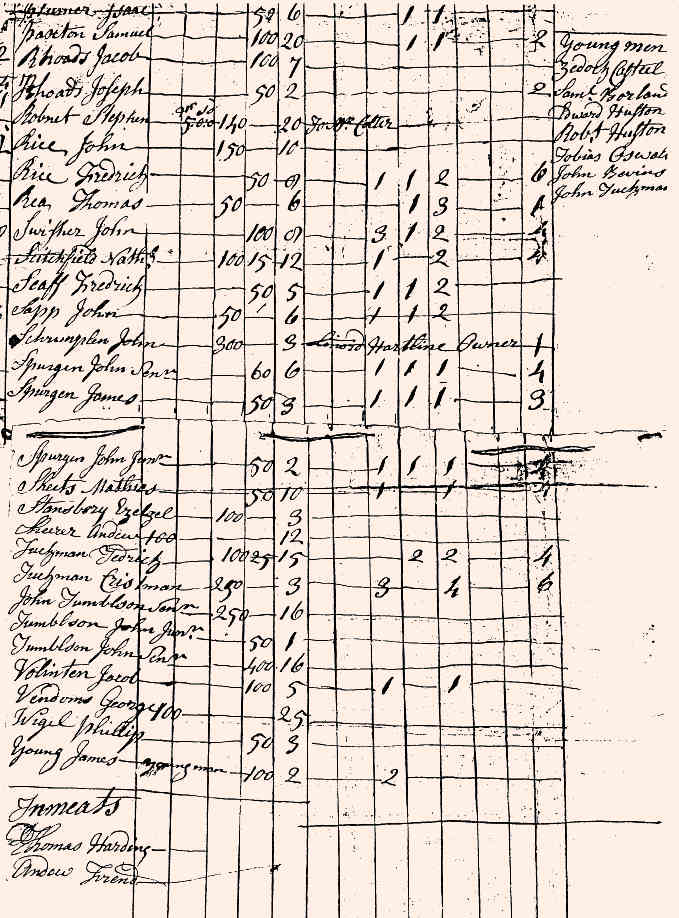 Plumer Isaac 50 6 1 1
Paxton Samuel 100 20 1 1 2
Rhoads Jacob 100 7
Rhoads Joseph 50 2 2
Robnet Stephen 500 140 20
Rice John 150 10
Rice Fredrich 50 9 1 1 2 6
Rea Thomas 50 6 1 3 1
Swisher John 100 9 3 1 2 4
100 15 12 1 2 4
Seaff Fredrich 50 5 1 1 2
Sapp John 50 6 1 1 2
John 300 3 Hartline Owner 1
Spurgen John Senr 60 6 1 1 1 4
Spurgen James 50 3 1 1 1 3
Spurgen John Junr 50 2 1 1 1 4
Sheets Mathies 50 10 1 1 4
Stansbory Ezekel 100 3
Andew 100 12
Tuchman Fedrich 100 25 15 2 2 4
Tuchman Cristman 250 3 3 4 6
John Tumblson Senr 250 16
Tumblson John Junr 50 1
Tumblson John Senr 400 16
Volinten Jacob 100 5 1 1
Vendoms George 100 25
Wigel Phillip 50 3
Young James young man 100 2 2
Inmeats
Thomas Harding
Andew Frend
Young men
Zedock Casteel
Saml Borland
Huston
Robt Huston
Tobias
John Bevins
John Tuchman